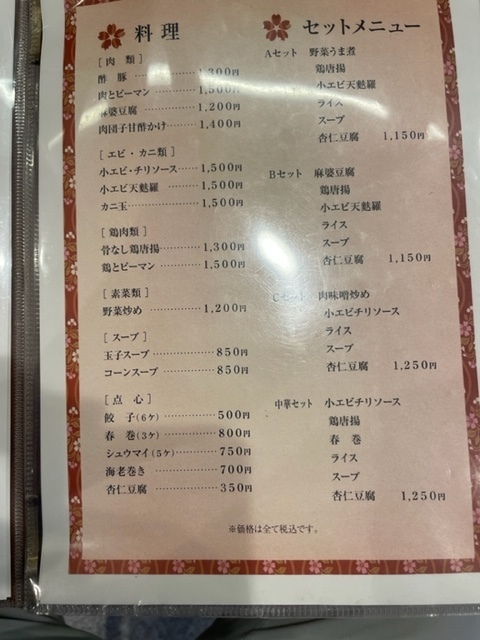 料理
[ 肉 類 ]
酢 豚 ………… 1,300円
肉とピーマン ……… 1,500円
麻婆豆腐 ………… 1,200円
肉団子甘酢かけ …… 1,400円
[ エビ・カニ類 ]
小エビ・チリソース …… 1,500円
小エビ天魁羅 …… 1,500円
カニ玉 ………… 1,500円
[ 鶏肉類 ]
骨なし鶏唐揚 ……… 1,300円
鶏とピーマン ……… 1,500円
[ 素菜類 ]
野菜炒め ………… 1,200円
[ スープ ]
玉子スープ ………… 850円
コーンスープ ……… 850円
[ 点 心 ]
餃 子(6ケ) ……… 500円
春 巻(3ケ) ……… 800円
シュウマイ(5ケ) …… 750円
海老巻き ………… 700円
杏仁豆腐 ………… 350円
セットメニュー
Aセット 野菜うま煮
鶏唐揚
小エビ天魁羅
ライス
スープ
杏仁豆腐 1,150円
Bセット 麻婆豆腐
鶏唐揚
小エビ天魁羅
ライス
スープ
杏仁豆腐 1,150円
Cセット 肉味噌炒め
小エビチリソース
ライス
スープ
杏仁豆腐 1,250円
中華セット 小エビチリソース
鶏唐揚
春 巻
ライス
スープ
杏仁豆腐 1,250円
※価格は全て税込です。